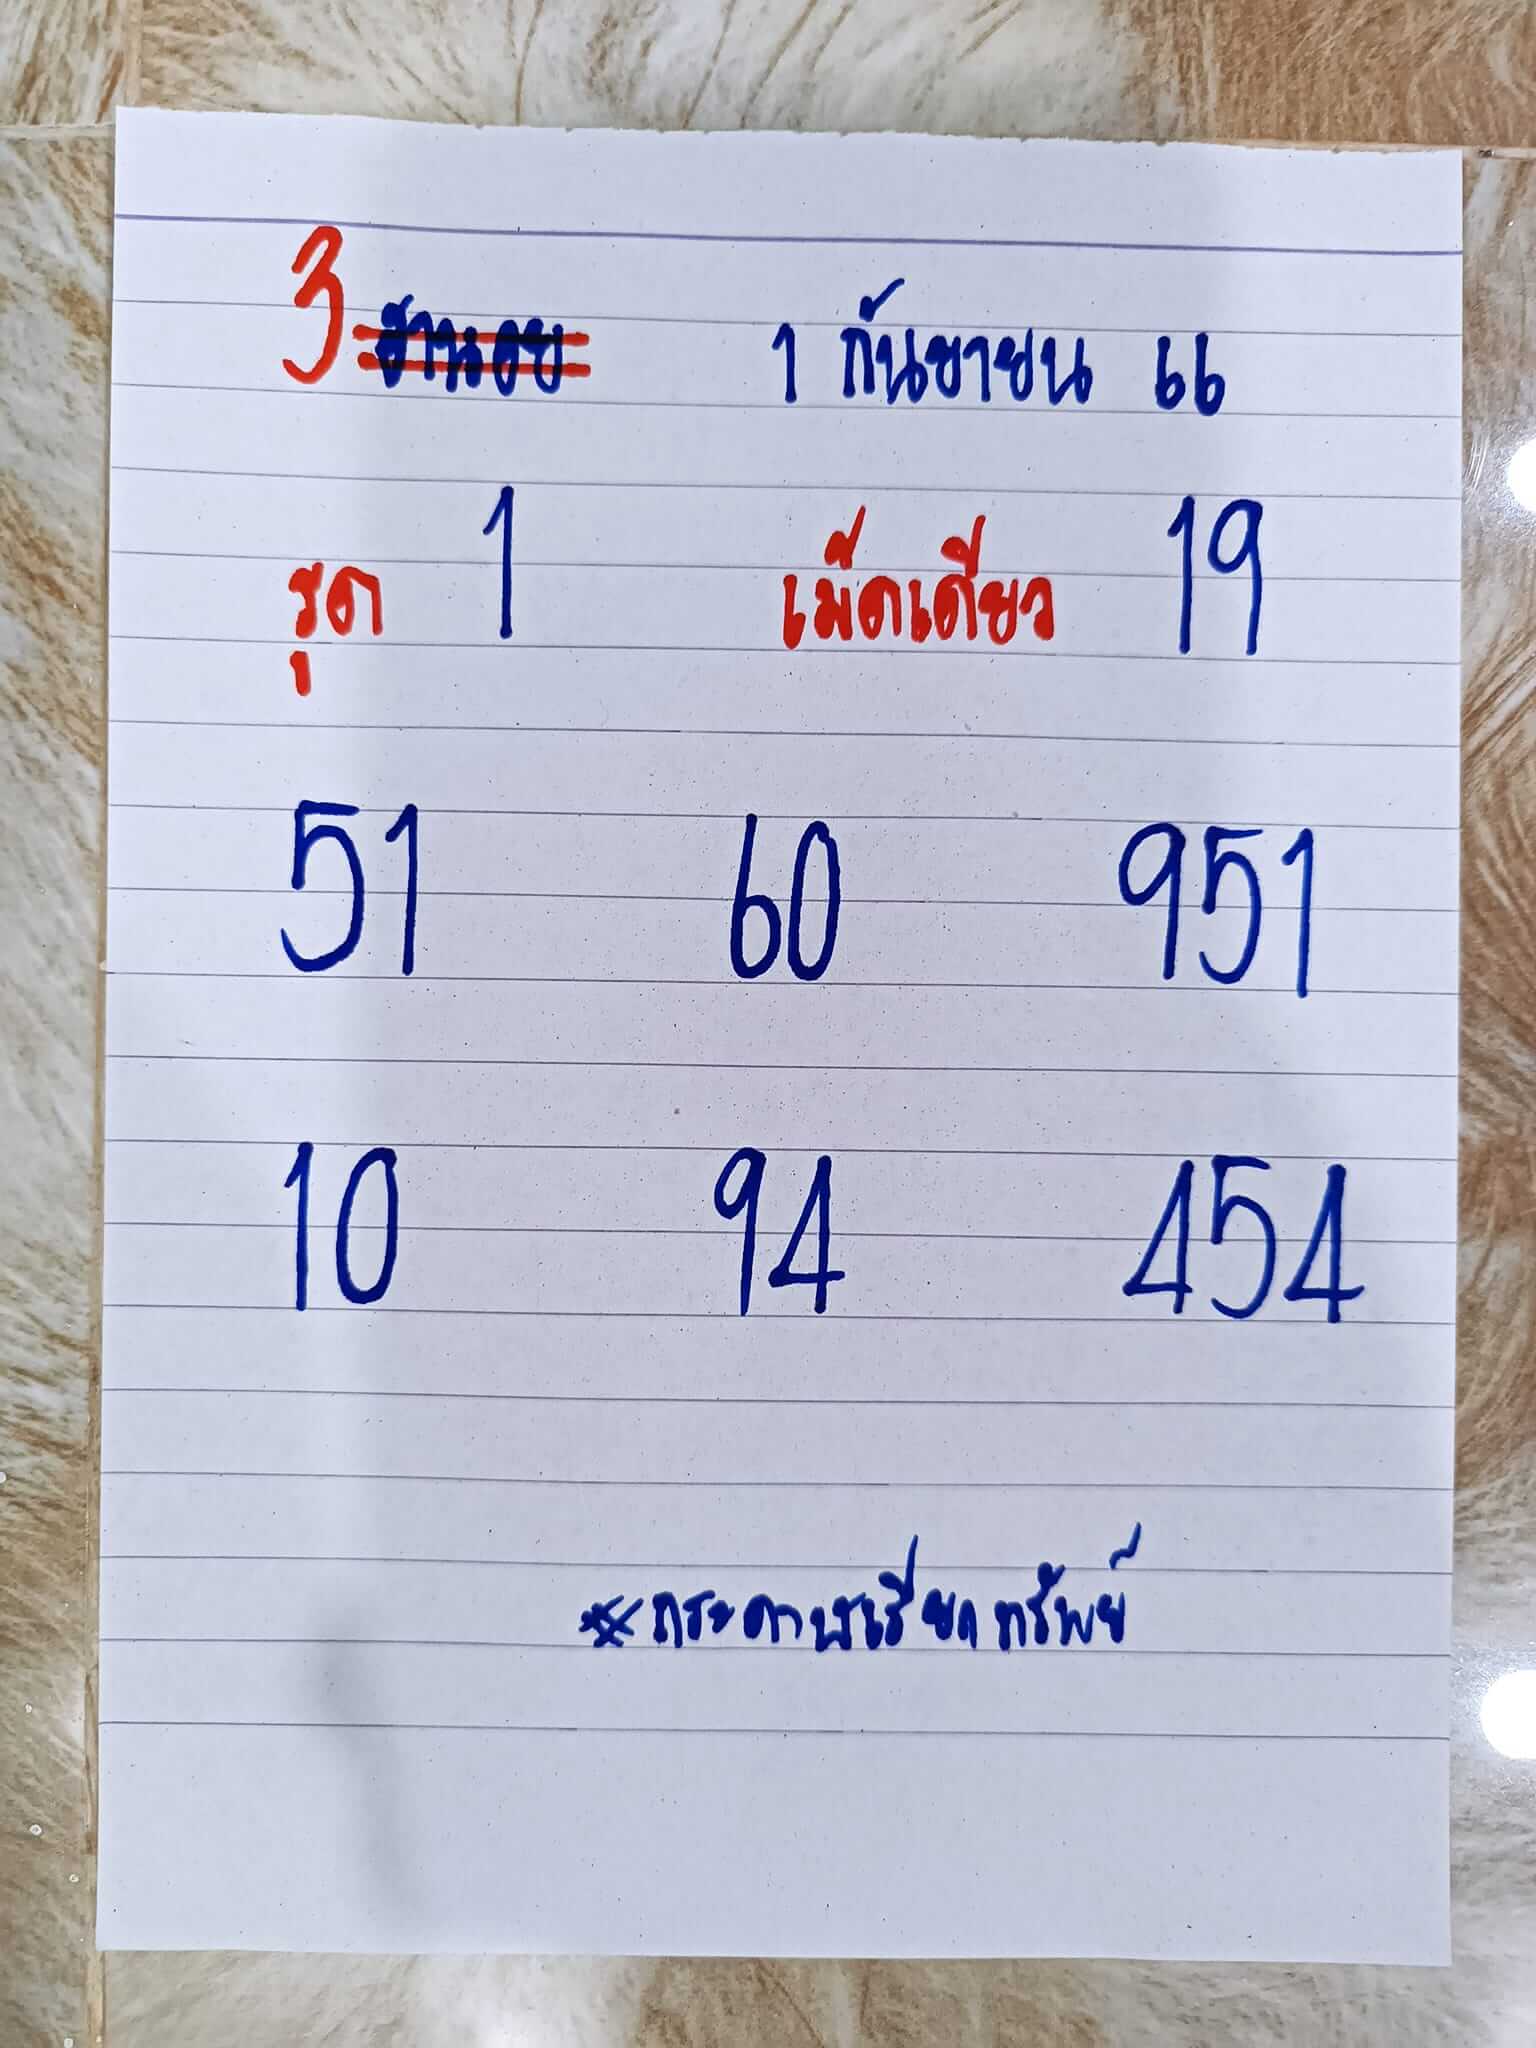 3 ฮานอย 1 กันยายน 66
รูด 1 เม็ดเดียว 19
51 60 951
10 94 454
※กระดาษเรียกทรัพย์